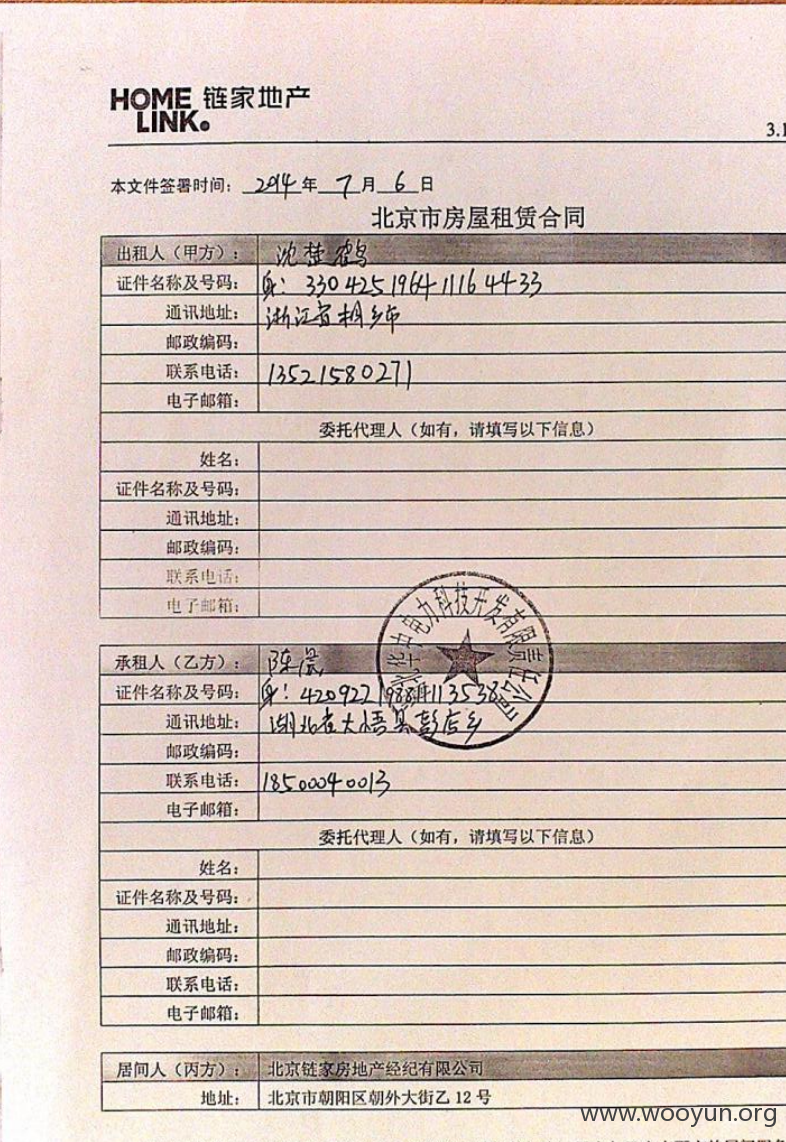 HOME LINK 链家地产
3.1
本文件签署时间：2014年7月6日
北京市房屋租赁合同
出租人（甲方）：沈楚鹤
证件名称及号码：身：330425196411164433
通讯地址：浙江省桐乡市
邮政编码：
联系电话：13521580271
电子邮箱：
委托代理人（如有，请填写以下信息）
姓名：
证件名称及号码：
通讯地址：
邮政编码：
联系电话：
电子邮箱：
华中电力科技开发有限责任公司
承租人（乙方）：陈晨
证件名称及号码：身：
通讯地址：湖北省大悟县彭店乡
邮政编码：
联系电话：18500040013
电子邮箱：
委托代理人（如有，请填写以下信息）
姓名：
证件名称及号码：
通讯地址：
邮政编码：
联系电话：
电子邮箱：
居间人（丙方）：北京链家房地产经纪有限公司
地址：北京市朝阳区朝外大街乙 12 号
www.wooyun.org